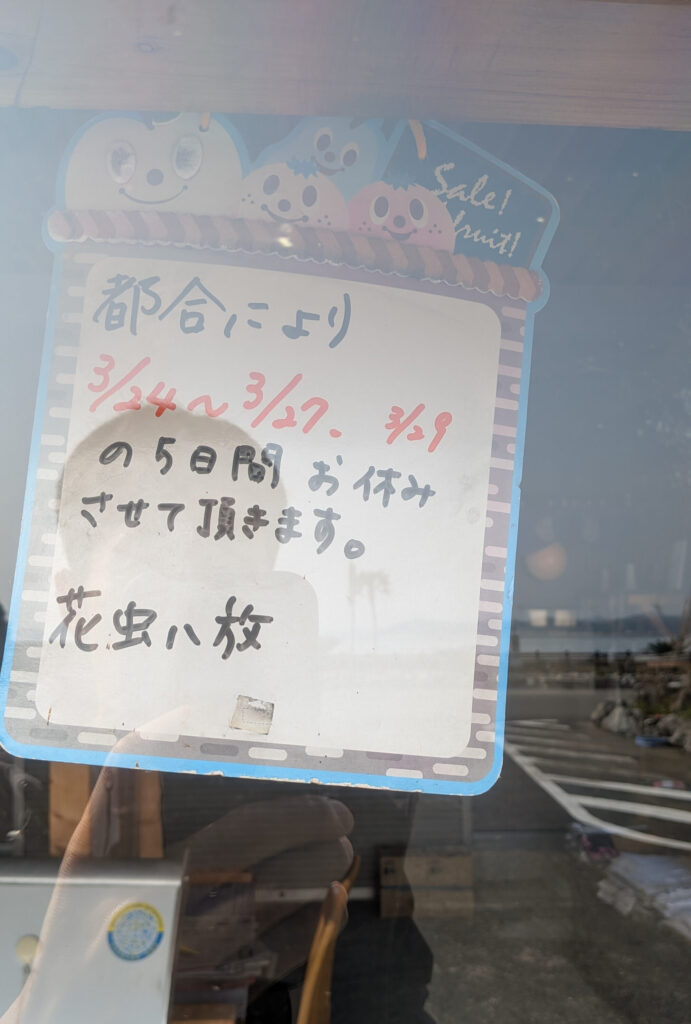 Sale!
fruit!
都合により
3/24〜3/27. 3/29
の5日間 お休み
させて頂きます。
花虫八放